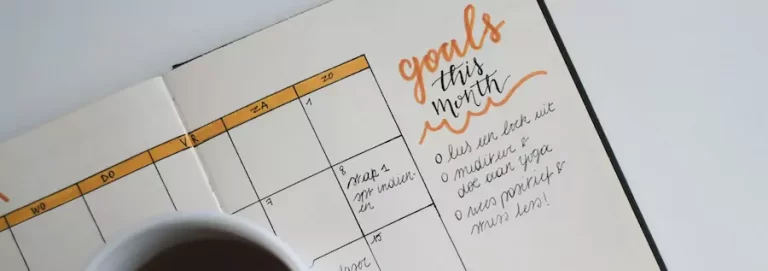 goals
this
month
WO
DO
VR
ZA
ZO
1
8
stap 1
9
15
o lees een boek uit
o mediteer &
doe aan yoga
o wees positief &
stress less!